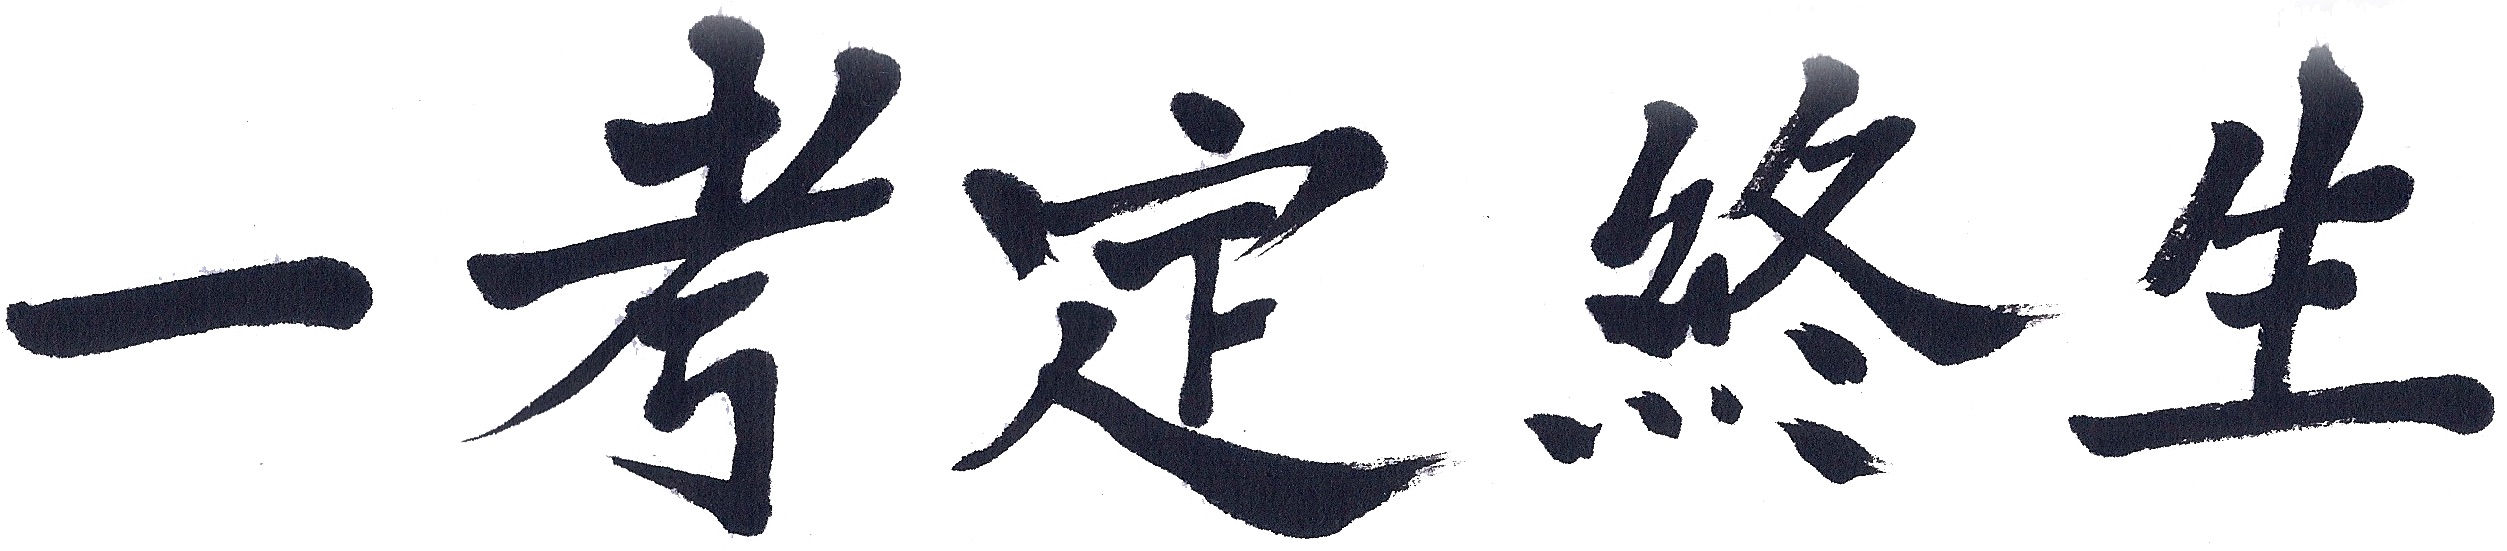 一考定終生